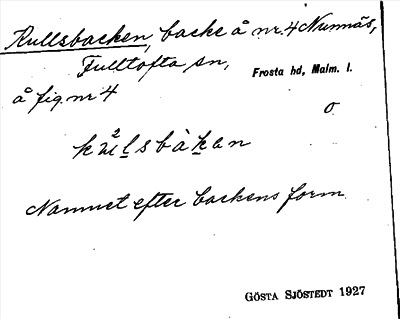 Kullsbacken, backe å nr. 4 Nunnäs,
Fulltofta sn,
Frosta hd, Malm. l.
å fig. nr 4
o
Namnet efter backens form
GÖSTA SJÖSTEDT 1927